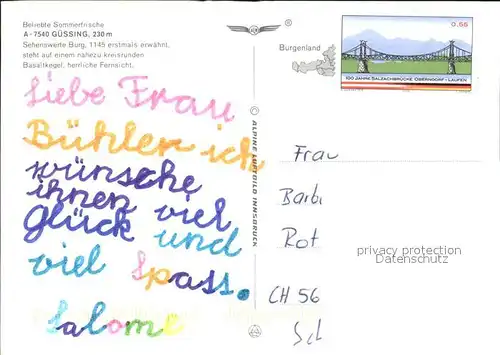 Beliebte Sommerfrische
A - 7540 GÜSSING, 230 m
Sehenswerte Burg, 1145 erstmals erwähnt,
steht auf einem nahezu kreisrunden
Basaltkegel, herrliche Fernsicht.
liebe Frau
Bühler ich
wünsche
ihnen viel
glück und
viel spass.
Salome
ALPINE LUFTBILD INNSBRUCK
®
Burgenland
0,55
100 JAHRE SALZACHBRÜCKE OBERNDORF - LAUFEN
Frau
Barb
Rot
privacy protection
Datenschutz
CH 56